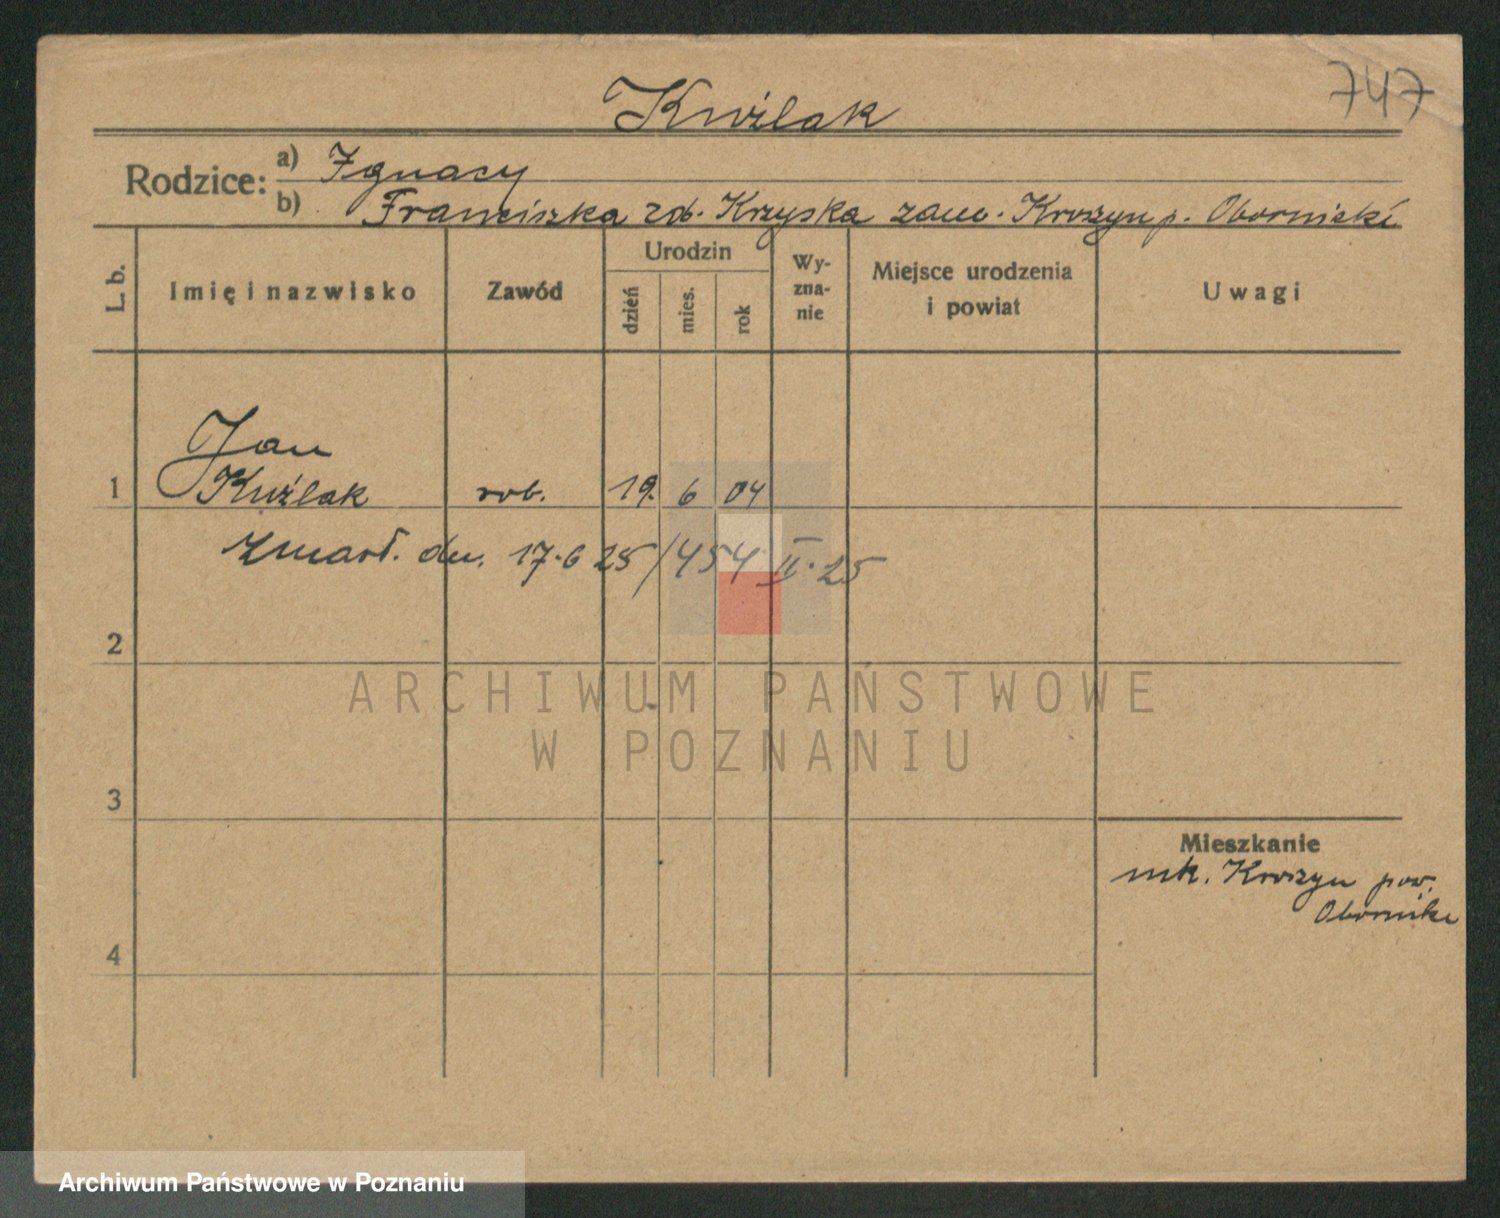 747
Kuźlak
Rodzice: a) Ignacy
b) Franciszka zd. Krzyska zam. Kroszyn p. Obornicki
L. b.
Imię i nazwisko
Zawód
Urodzin
dzień
mies.
rok
Wy-
zna-
nie
Miejsce urodzenia
i powiat
Uwagi
Jan
1 Kuźlak rob. 19. 6 04
Zmarł. dn. 17.6 25/454 II.25
2
ARCHIWUM PAŃSTWOWE
W POZNANIU
3
Mieszkanie
mk. Kroszyn pow.
Oborniki
4
Archiwum Państwowe w Poznaniu